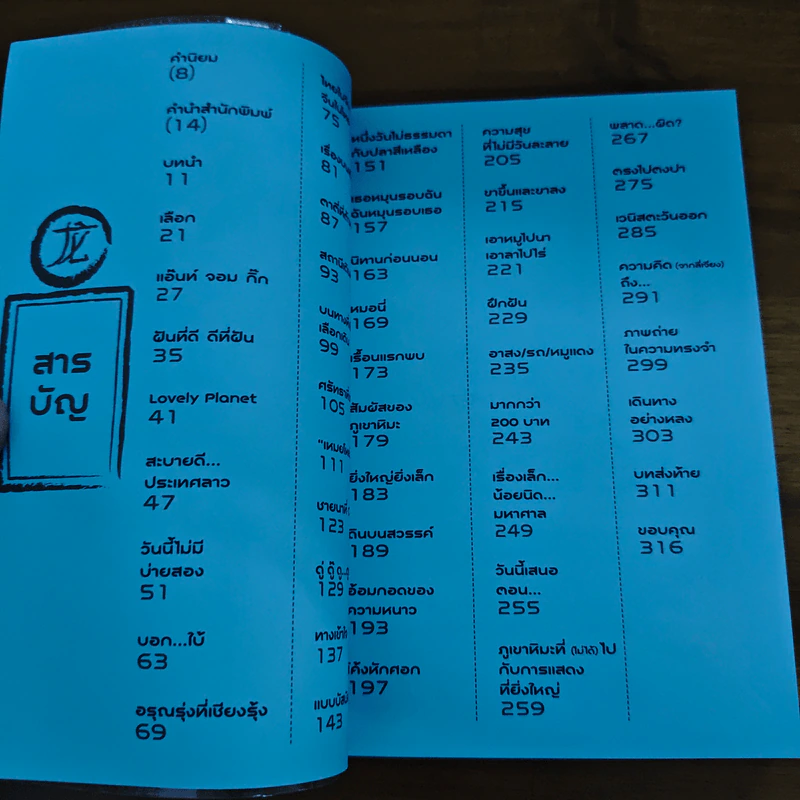 สาร
บัญ
คำนิยม
(8)
คำนำสำนักพิมพ์
(14)
บทนำ
11
เลือก
21
แอ๊นท์ จอม กิ๊ก
27
ฝันที่ดี ดีที่ฝัน
35
Lovely Planet
41
สะบายดี...
ประเทศลาว
47
วันนี้ไม่มี
บ่ายสอง
51
บอก...ใบ้
63
อรุณรุ่งที่เชียงรุ้ง
69
75
81
87
93
บนทาง
เลือก
99
105
111
123
129
137
143
หนึ่งวันไม่ธรรมดา
กับปลาสีเหลือง
151
เธอหมุนรอบฉัน
ฉันหมุนรอบเธอ
157
นิทานก่อนนอน
163
หมอนี่
169
เรื้อนแรกพบ
173
สัมผัสของ
ภูเขาหิมะ
179
ยิ่งใหญ่ยิ่งเล็ก
183
ดินบนสวรรค์
189
อ้อมกอดของ
ความหนาว
193
โค้งหักศอก
197
ความสุข
ที่ไม่มีวันละลาย
205
ขาขึ้นและขาลง
215
เอาหมูไปนา
เอาลาไปไร่
221
ฝึกฝน
229
อาสง/รถ/หมูแดง
235
มากกว่า
200 บาท
243
เรื่องเล็ก...
น้อยนิด...
มหาศาล
249
วันนี้เสนอ
ตอน...
255
ภูเขาหิมะที่ (ไม่ได้) ไป
กับการแสดง
ที่ยิ่งใหญ่
259
พลาด...ผิด?
267
ตรงไปตงปา
275
เวนิสตะวันออก
285
ความคิด (จากลี่เจียง)
ถึง...
291
ภาพถ่าย
ในความทรงจำ
299
เดินทาง
อย่างหลง
303
บทส่งท้าย
311
ขอบคุณ
316